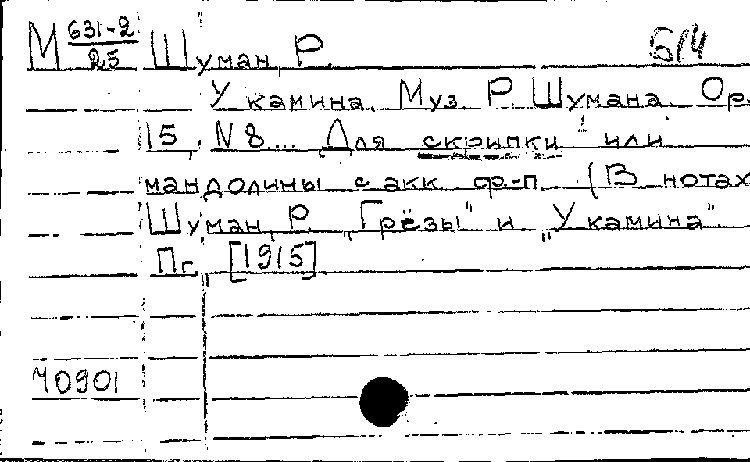 М 631-2/25 Шуман, Р. 514
У камина. Муз. Р. Шумана. Ор.
15, N 8... Для скрипки или
мандолины с акк. ф-п. (В нотах
Шуман, Р. „Грёзы" и „У камина".
Пг. [1915].
40901